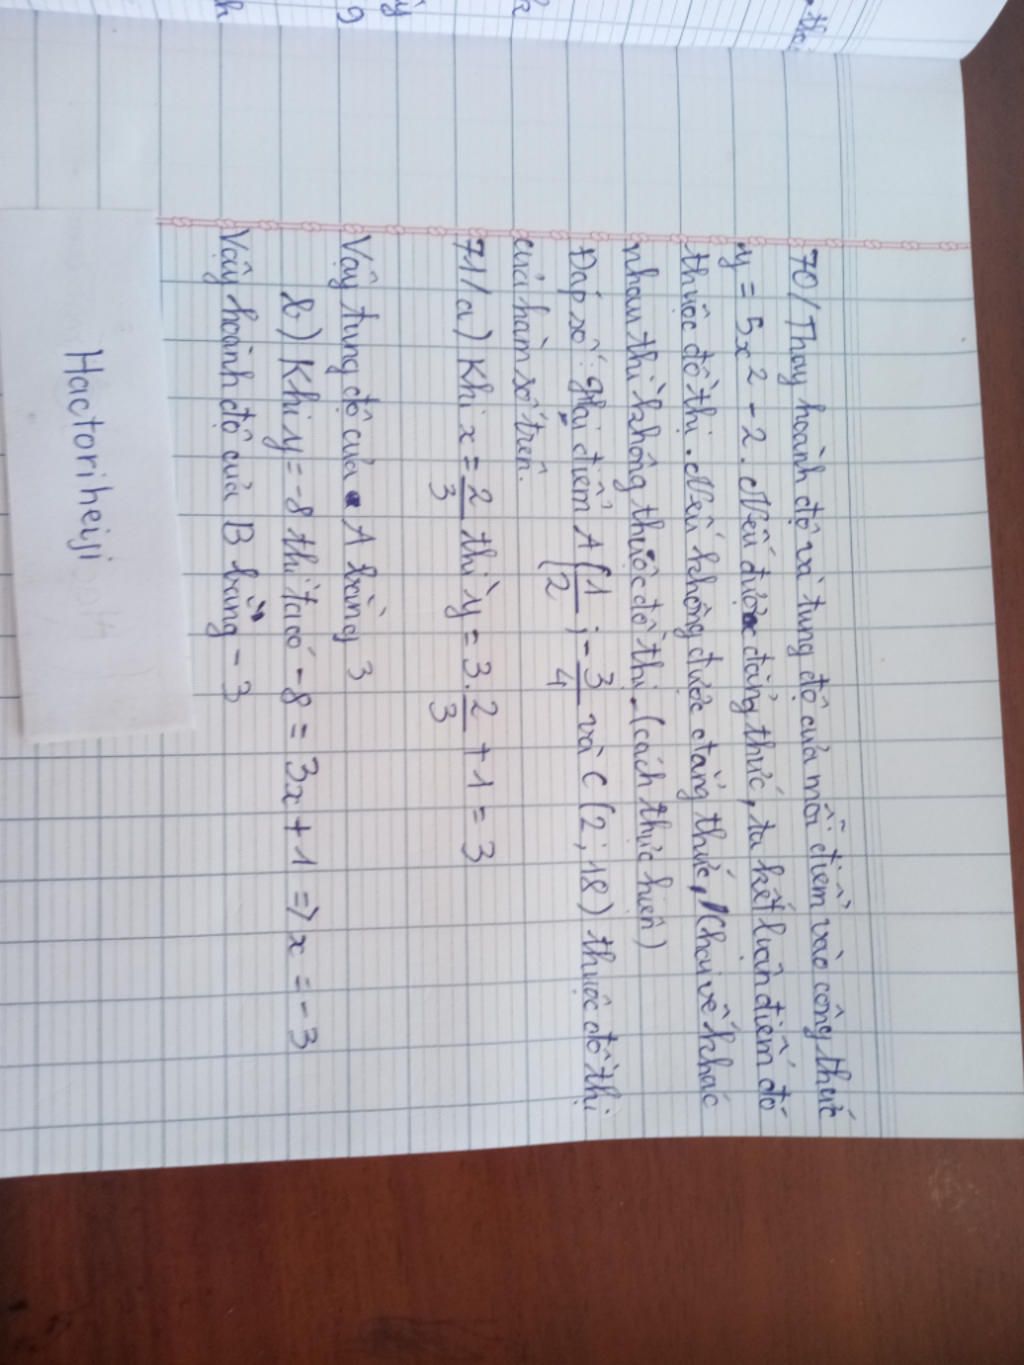 70/ Thay hoành độ và tung độ của mỗi điểm vào công thức
y = 5x² - 2. Nếu được đẳng thức, ta kết luận điểm đó
thuộc đồ thị. Nếu không được đẳng thức, (hai vế khác
nhau thì không thuộc đồ thị. (cách thực hiện)
Đáp số: Hai điểm A (1/2 ; -3/4 và C (2 ; 18) thuộc đồ thị
của hàm số trên.
71/ a) Khi x = 2/3 thì y = 3. 2/3 + 1 = 3
Vậy tung độ của A bằng 3
b) Khi y = -8 thì ta có -8 = 3x + 1 => x = -3
Vậy hoành độ của B bằng -3
Hactoriheiji